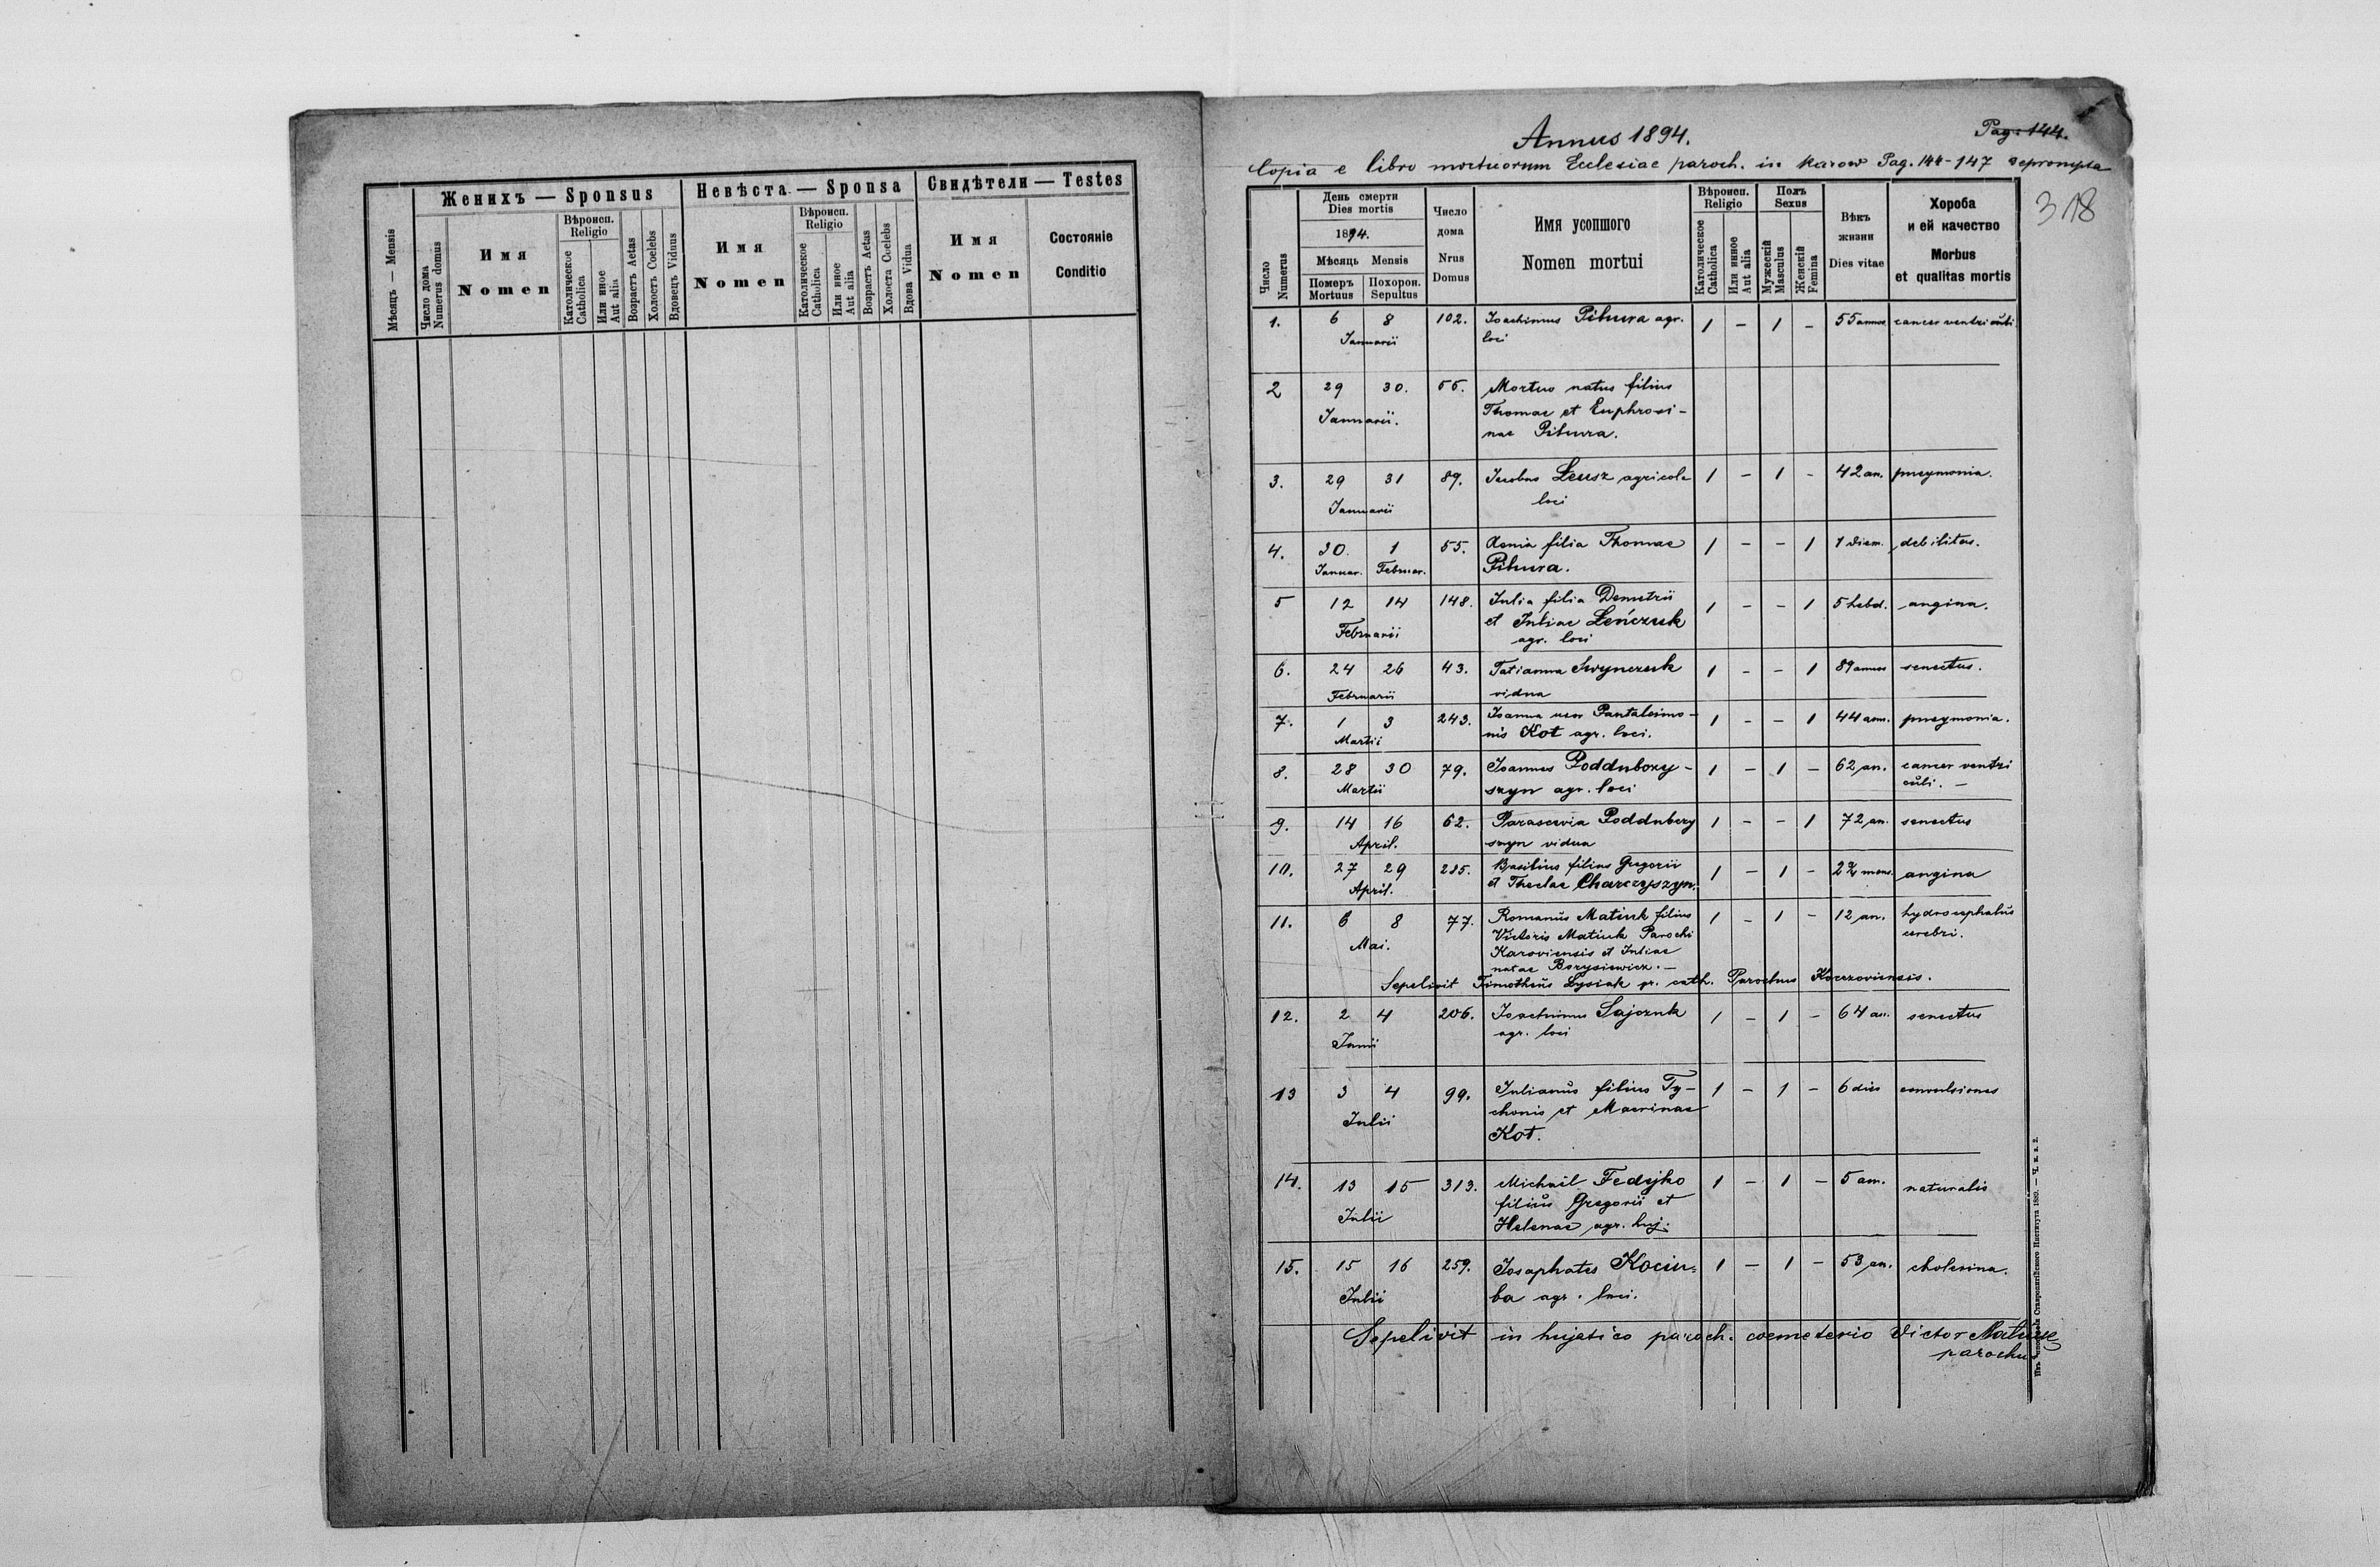 Женихъ — Sponsus
Невѣста — Sponsa
Свидѣтели — Testes
Мѣсяцъ — Mensis
Число дома
Numerus domus
Имя
Nomen
Вѣроисп.
Religio
Католическое
Catholica
Или иное
Aut alia
Возрастъ Aetas
Холостъ Coelebs
Вдовецъ Viduus
Имя
Nomen
Вѣроисп.
Religio
Католическое
Catholica
Или иное
Aut alia
Возрастъ Aetas
Холоста Coelebs
Вдова Vidua
Имя
Nomen
Состояніе
Conditio
Annus 1894.
Pag. 144.
Copia e libro mortuorum Ecclesiae paroch. in Karow Pag. 144-147 deprompta
318
Число
Numerus
День смерти
Dies mortis
1894.
Мѣсяць Mensis
Померъ
Mortuus
Похорон.
Sepultus
Число
дома
Nrus
Domus
Имя усопшого
Nomen mortui
Вѣроисп.
Religio
Католическое
Catholica
Или инное
Aut alia
Полъ
Sexus
Мужескій
Masculus
Женскій
Femina
Вѣкъ
жизни
Dies vitae
Хороба
и ей качество
Morbus
et qualitas mortis
1. 6 8 102. Joachimus Pitura agr. 1 – 1 – 55 annos cancer ventriculi
Januarii loci
2 29 30. 55. Mortuo natus filius
Januarii. Thomae et Euphrosi-
nae Pitura.
3. 29 31 89. Jacobus Leusz agricola 1 – 1 – 42 an. pneymonia.
Januarii loci
4. 30. 1 55. Xenia filia Thomae 1 – – 1 1 diem. debilitas.
Januar. Februar. Pitura.
5 12 14 148. Julia filia Demetrii 1 – – 1 5 hebd. angina.
Februarii et Juliae Leńczuk
agr. loci
6. 24 26 43. Tatianna Swynczuk 1 – – 1 89 annos senectus.
Februarii vidua
7. 1 3 243. Joanna uxor Pantaleimo- 1 – – 1 44 ann. pneymonia.
Martii nis Kot agr. loci.
8. 28 30 79. Joannes Poddubczy- 1 – 1 – 62 an. cancer ventri
Martii szyn agr. loci culi. –
9. 14 16 62. Parascevia Poddubczy 1 – – 1 72 an. senectus
April. szyn vidua
10. 27 29 285. Basilius filius Gregorii 1 – 1 – 2 2/4 mens. angina
April. et Theclae Charczyszyn.
11. 6 8 77. Romanus Matiuk filius 1 – 1 – 12 an. hydrocephalus
Mai. Victoris Matiuk Parochi cerebri.
Karoviensis et Juliae
natae Borysiewicz. –
Sepelivit Timotheus Lysiak gr. cath. Parochus Korczoviensis.
12. 2 4 206. Joachimus Sajczuk 1 – 1 – 64 an. senectus
Junii agr. loci
13 3 4 99. Julianus filius Ty- 1 – 1 – 6 dies convulsiones
Julii chonis et Macrinae
Kot.
14. 13 15 313. Michail Fedejko 1 – 1 – 5 ann. naturalis
Julii filius Gregorii et
Helenae agr. huj.
15. 15 16 259. Josaphates Kociu- 1 – 1 – 53 an. cholerina.
Julii ba agr. loci.
Sepelivit in hujatico paroch. coemeterio Victor Matiuk
parochus
Ставропигійского Института 1889. — Ч. к. з. 2.